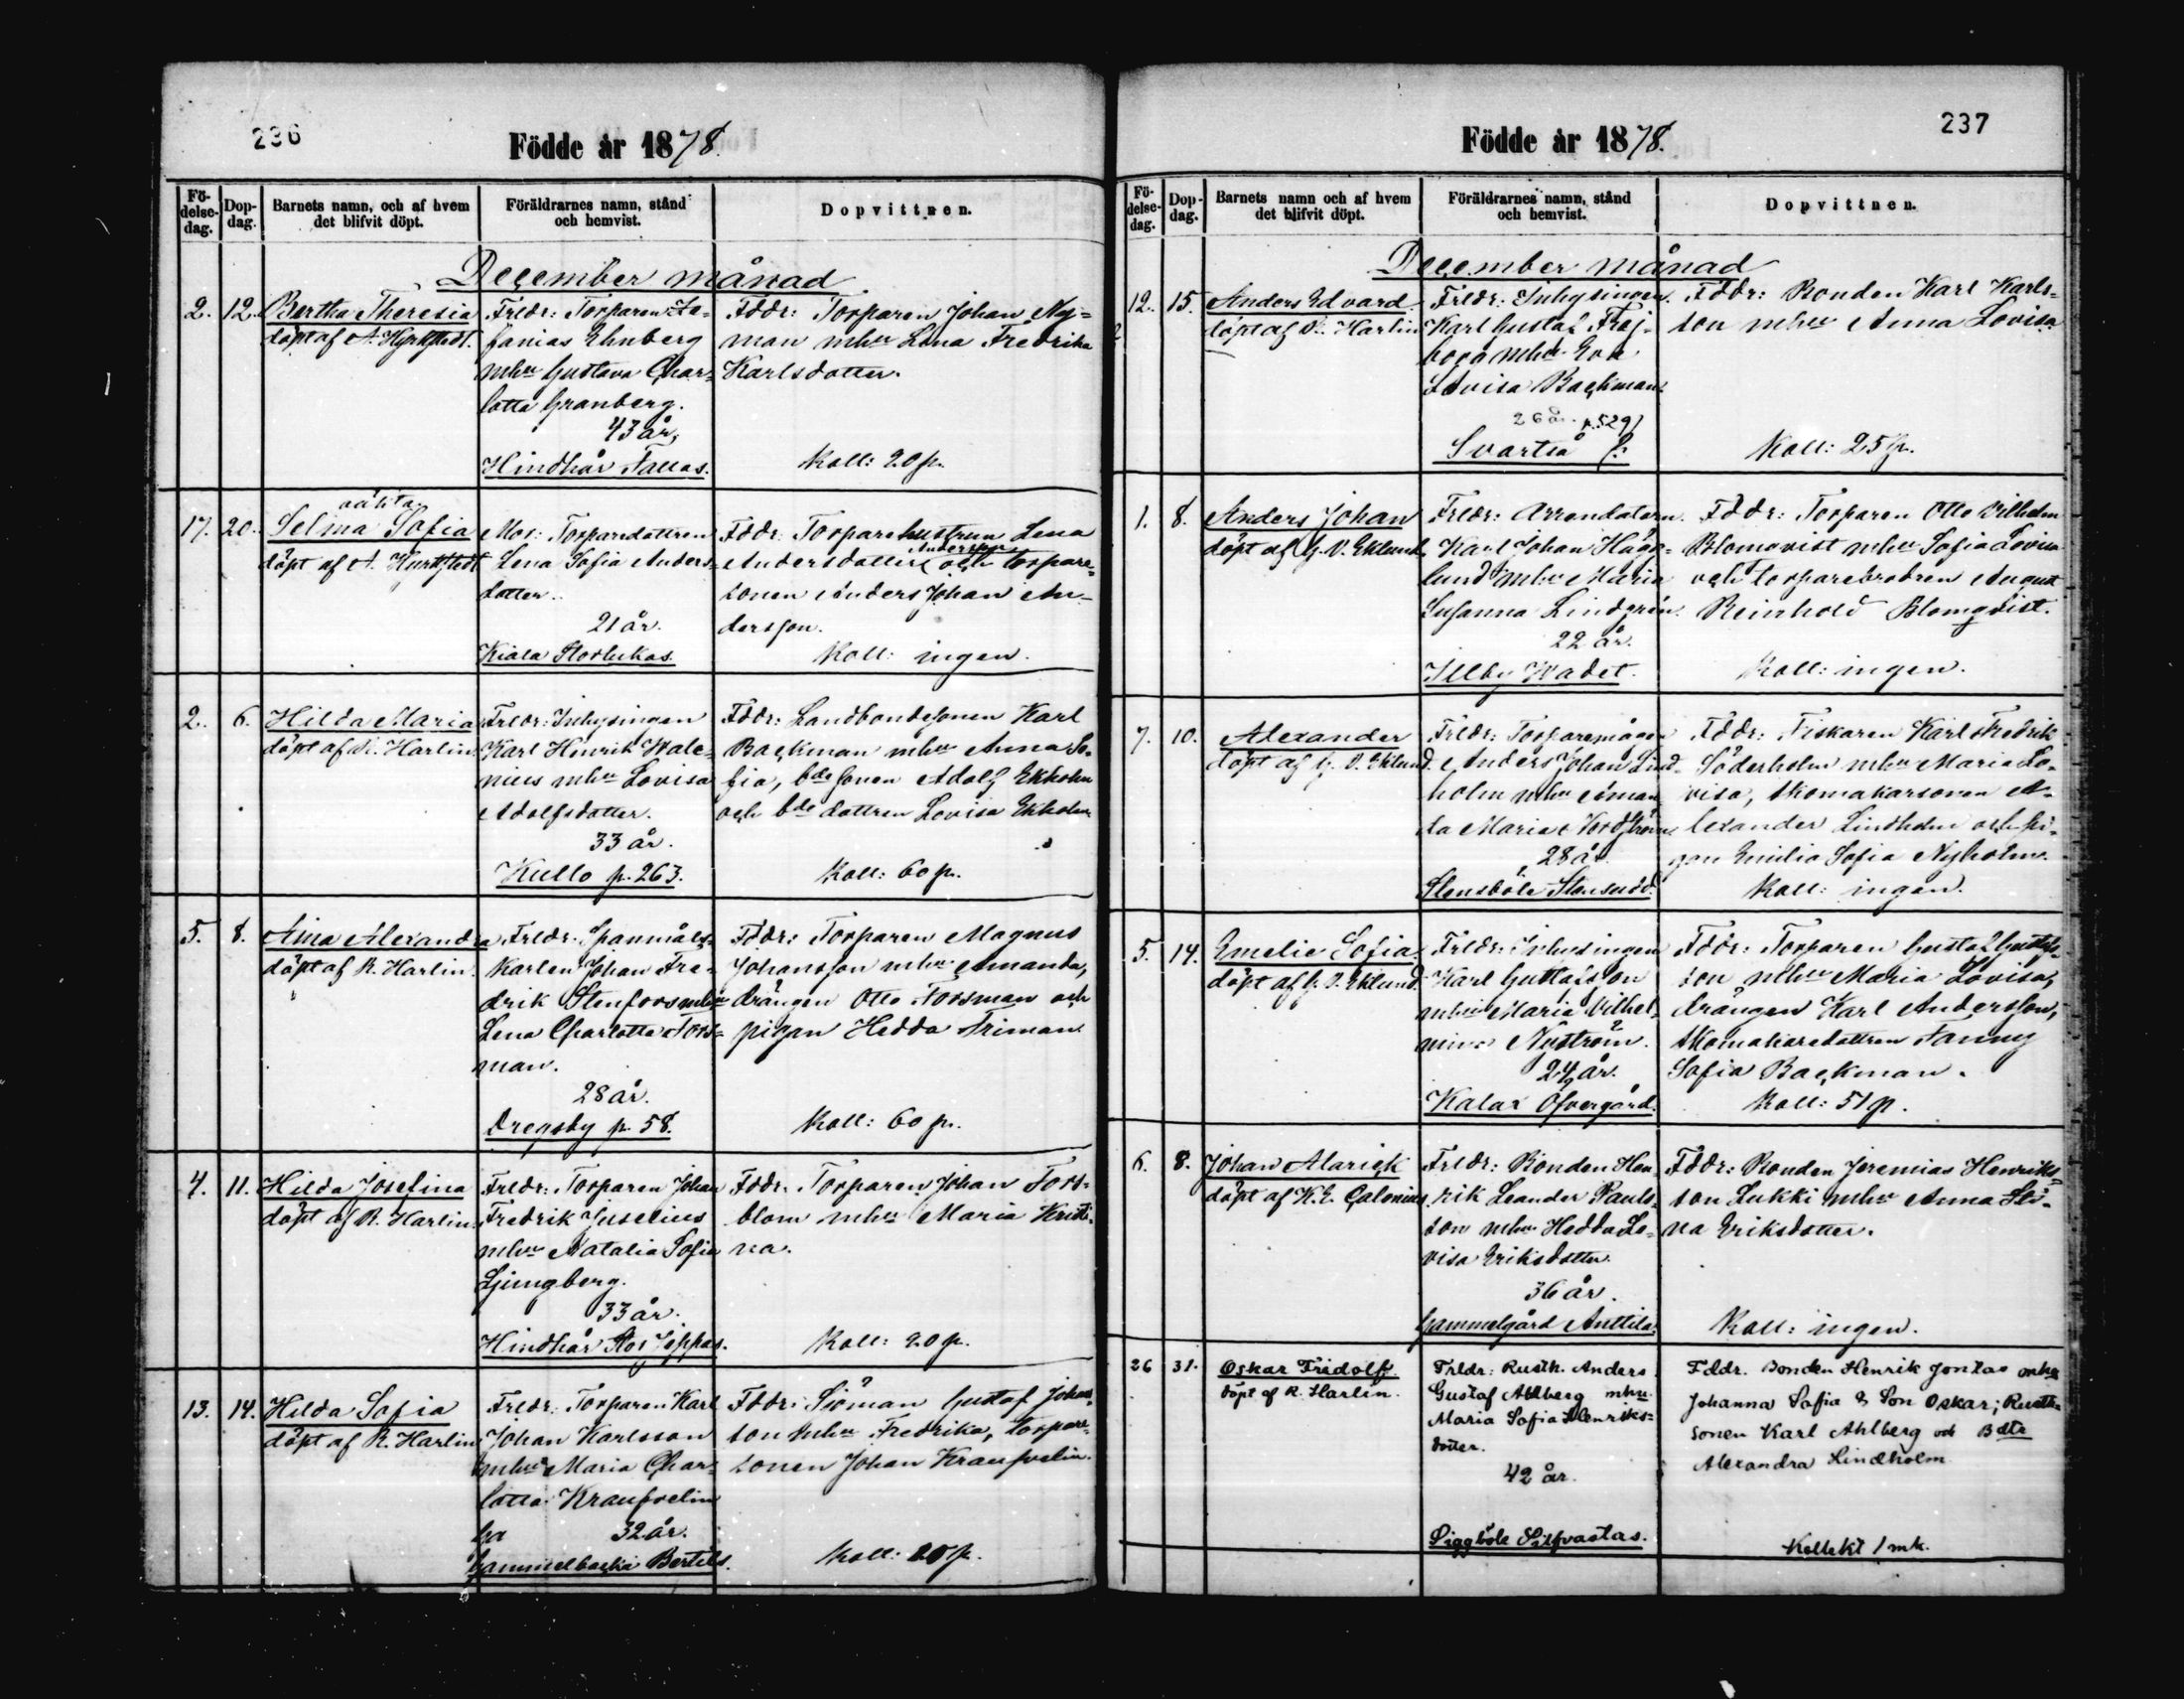 236
Födde år 1878.
Fö-
delse-
dag.
Dop-
dag.
Barnets namn, och af hvem
det blifvit döpt.
Föräldrarnes namn, stånd
och hemvist.
Dopvittnen.
December månad
2. 12. Bertha Theresia
döpt af A. Hyrkstedt.
Frldr: Torparen Za-
fanias Ehnberg
mhu Gustava Char-
lotta Granberg.
43 år,
Hindhår Tallas.
Fddr: Torparen Johan Ny-
man mhu Lena Fredrika
Karlsdotter.
Koll: 20 p.
17. 20. oäkta
Selma Sofia
döpt af A. Hyrkstedt
Mor: Torparedottren
Lena Sofia Anders-
dotter.
21 år.
Kiala Storlukas.
Fddr: Torparehustrun Lena
Andersdotter och torpare-
sonen Anders Johan An-
dersson.
Koll: ingen.
2. 6. Hilda Maria
döpt af R. Harlin.
Frldr: Inhysingen
Karl Henrik Wale-
nius mhu Lovisa
Adolfsdotter.
33 år.
Kullo p. 263.
Fddr: Landbondesonen Karl
Backman mhu Anna So-
fia, bdesonen Adolf Ekholm
och bde dottren Lovisa Ekholm
Koll: 60 p.
5. 8. Aina Alexandra
döpt af R. Harlin.
Frldr: Spannmåls-
karlen Johan Fre-
drik Stenfors mhu
Lena Charlotta Fors-
man.
28 år.
Dregsby p. 58.
Fddr: Torparen Magnus
Johansson mhu Amanda,
drängen Otto Forsman och
pigan Hedda Friman
Koll: 60 p.
4. 11. Hilda Josefina
döpt af R. Harlin.
Frldr: Torparen Johan
Fredrik Juselius
mhu Natalia Sofia
Ljungberg.
33 år.
Hindhår Stor Jeppas.
Fddr: Torparen Johan Fors-
blom mhu Maria Kristi-
na.
Koll: 20 p.
13. 14. Hilda Sofia
döpt af R. Harlin
Frldr: Torparen Karl
Johan Karlsson
mhu Maria Char-
lotta Kraufvelin
32 år.
Gammelbacka Bertils.
Fddr: Sjöman Gustaf Johans-
son mhu Fredrika, torpare-
sonen Johan Kraufvelin.
Koll: 20 p.
237
Födde år 1878.
Fö-
delse-
dag.
Dop-
dag.
Barnets namn och af hvem
det blifvit döpt.
Föräldrarnes namn, stånd
och hemvist.
Dopvittnen.
December månad
12. 15. Anders Edvard
döpt af R. Harlin
Frldr: Inhysingen
Karl Gustaf Frej-
borg mhu Eva
Lovisa Backman.
26 år. p. 529
Svartså
Fddr: Bonden Karl Karls-
son mhu Anna Lovisa
Koll: 25 p.
1. 8. Anders Johan
döpt af G. V. Eklund.
Frldr: Arrendatorn
Karl Johan Hägg-
lund mhu Maria
Susanna Lindgrén.
22 år.
Illby Wadet.
Fddr: Torparen Otto Vilhelm
Blomqvist mhu Sofia Lovisa
och torparebrodren August
Reinhold Blomqvist.
Koll: ingen.
7. 10. Alexander
döpt af G. V. Eklund.
Frldr: Torparemågen
Anders Johan Lind-
holm mhu Aman-
da Maria Nordström
28 år.
Stensböle Stensudd.
Fddr: Fiskaren Karl Fredrik
Söderholm mhu Maria Lo-
visa, skomakarsonen A-
lexander Lindholm och pi-
gan Emilia Sofia Nyholm.
Koll: ingen.
5. 14. Emelie Sofia
döpt af G. V. Eklund.
Frldr: Inhysingen
Karl Gustafsson
mhu Maria Vilhel-
mina Nyström.
24 år.
Kalax Öfvergård.
Fddr: Torparen Gustaf Gustafs-
son mhu Maria Lovisa,
drängen Karl Andersson,
skomakaredottren Fanny
Sofia Backman.
Koll: 51 p.
6. 8. Johan Alarick
döpt af K. E. Calonius
Frldr: Bonden Hen-
rik Leander Pauls-
son mhu Hedda Lo-
visa Eriksdotter.
36 år.
Gammelgård Anttila.
Fddr: Bonden Jeremias Henriks-
son Sukki mhu Anna Sti-
na Eriksdotter.
Koll: ingen.
26 31. Oskar Fridolf.
döpt af R. Harlin.
Frldr: Rusth. Anders
Gustaf Ahlberg mhu
Maria Sofia Henriks-
dotter.
42 år.
Siggböle Silfvastas.
Fddr. Bonden Henrik Jontas mhu
Johanna Sofia & Son Oskar; Rusth-
sonen Karl Ahlberg och Bdtr
Alexandra Lindholm
Kollekt 1 mk.